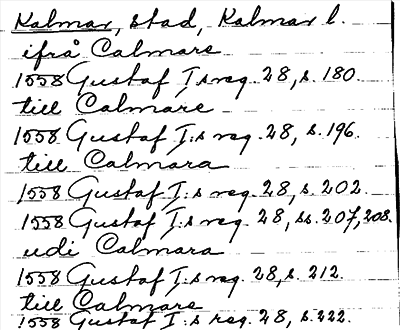 Kalmar, stad, Kalmar l.
ifrå Calmare
1558 Gustaf I:s reg. 28, s. 180.
till Calmare
1558 Gustaf I:s reg. 28, s. 196.
till Calmara
1558 Gustaf I:s reg. 28, s. 202.
1558 Gustaf I:s reg. 28, ss. 207, 208.
udi Calmara
1558 Gustaf I:s reg. 28, s. 212.
till Calmare
1558 Gustaf I:s reg. 28, s. 222.